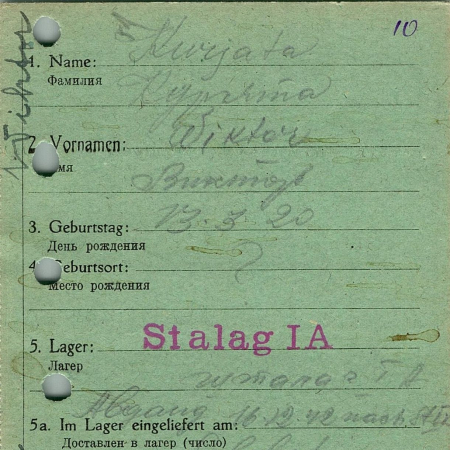 10
Wiktor
1. Name: Kurjata
Фамилия
Курята
2. Vornamen: Wiktor
Имя
Виктор
3. Geburtstag: 13.3.20
День рождения
4. Geburtsort:
Место рождения
5. Lager: Stalag IA
Лагер
шталаг I A
Abgang 16.12.42 nach
5a. Im Lager eingeliefert am:
Доставлен в лагер (число)